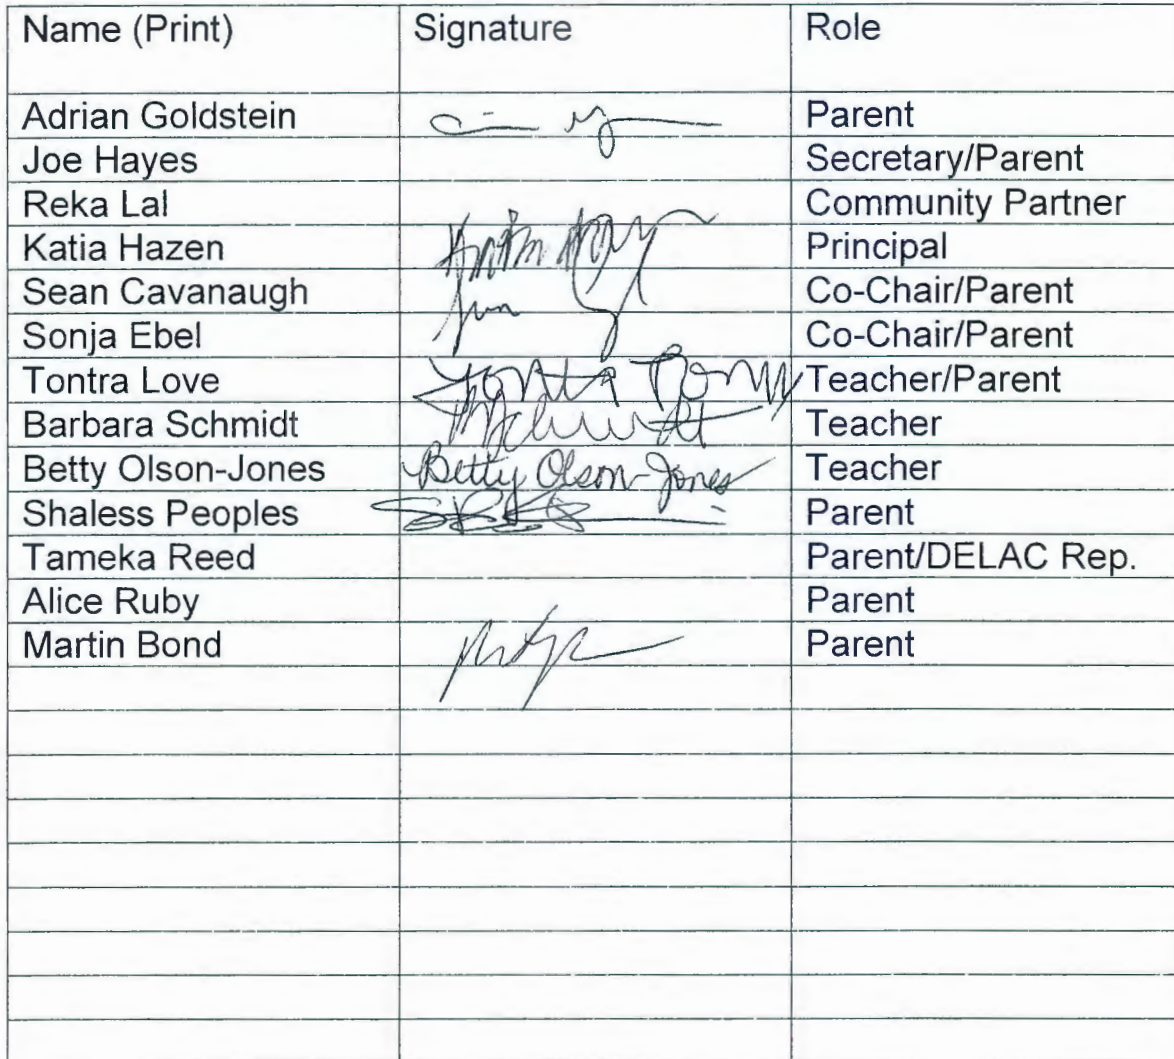 Name (Print) Signature Role
Adrian Goldstein Parent
Joe Hayes Secretary/Parent
Reka Lal Community Partner
Katia Hazen Principal
Sean Cavanaugh Co-Chair/Parent
Sonja Ebel Co-Chair/Parent
Tontra Love Teacher/Parent
Barbara Schmidt Schmidt Teacher
Betty Olson-Jones Betty Olson-Jones Teacher
Shaless Peoples Parent
Tameka Reed Parent/DELAC Rep.
Alice Ruby Parent
Martin Bond Parent